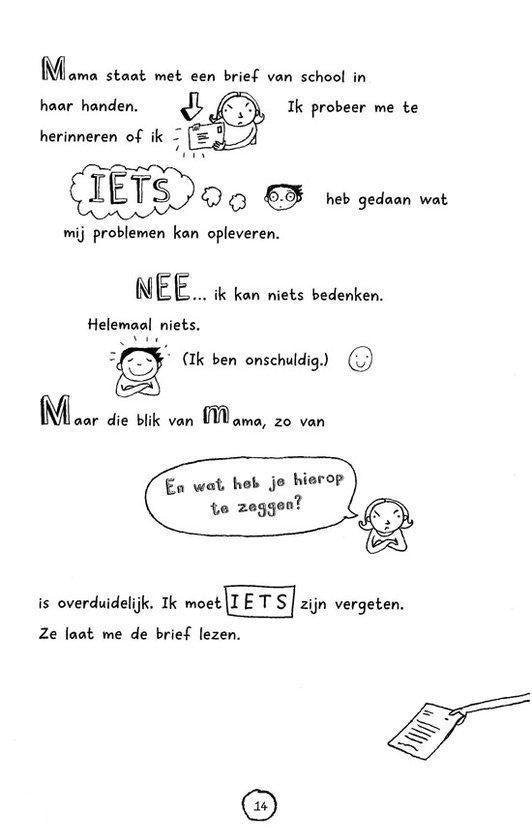 Mama staat met een brief van school in
haar handen. Ik probeer me te
herinneren of ik
IETS heb gedaan wat
mij problemen kan opleveren.
NEE... ik kan niets bedenken.
Helemaal niets.
(Ik ben onschuldig.)
Maar die blik van mama, zo van
En wat heb je hierop
te zeggen?
is overduidelijk. Ik moet IETS zijn vergeten.
Ze laat me de brief lezen.
14